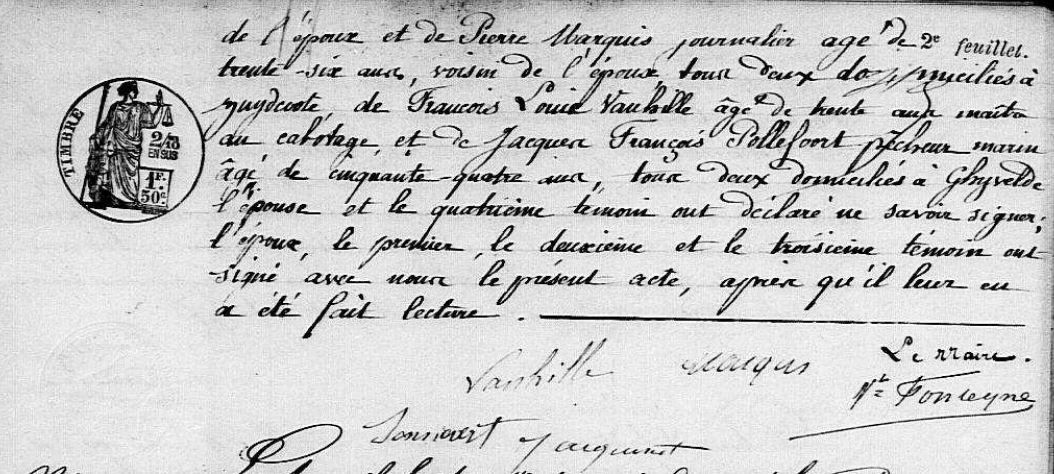 de l'époux et de Pierre Marquis journalier agé de 2e feuillet.
trente-six ans, voisin de l'époux, tous deux domiciliés à
Zuydcoote, de François Louis Vanhille âgé de trente ans maître
au cabotage, et de Jacques François Pollefoort pêcheur marin
âgé de cinquante-quatre ans, tous deux domiciliés à Ghyvelde
l'épouse et le quatrième témoin ont déclaré ne savoir signer;
l'époux, le premier, le deuxième et le troisième témoin ont
signé avec nous le présent acte, après qu'il leur en
a été fait lecture.
TIMBRE
2/10
EN SUS
1F.
50c.
Le Maire.
Vanhille Marquis
Fonteyne